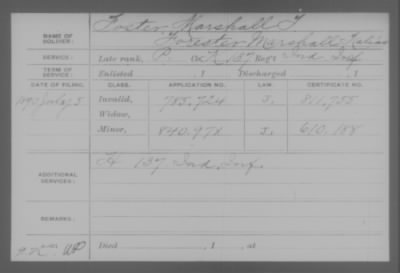 Foster, Marshall T
NAME OF SOLDIER: Forester Marshall Kalijas
SERVICE: Late rank, P. Co. K, 137 Reg't Ind Inf
TERM OF SERVICE: Enlisted , 1 Discharged , 1
DATE OF FILING. CLASS. APPLICATION NO. LAW. CERTIFICATE NO.
July 5 Invalid, 785,724 J. 811,755
Widow,
Minor, 840,978 J. 610,188
ADDITIONAL SERVICES: 137 Ind. Inf.
REMARKS:
Died , 1 , at